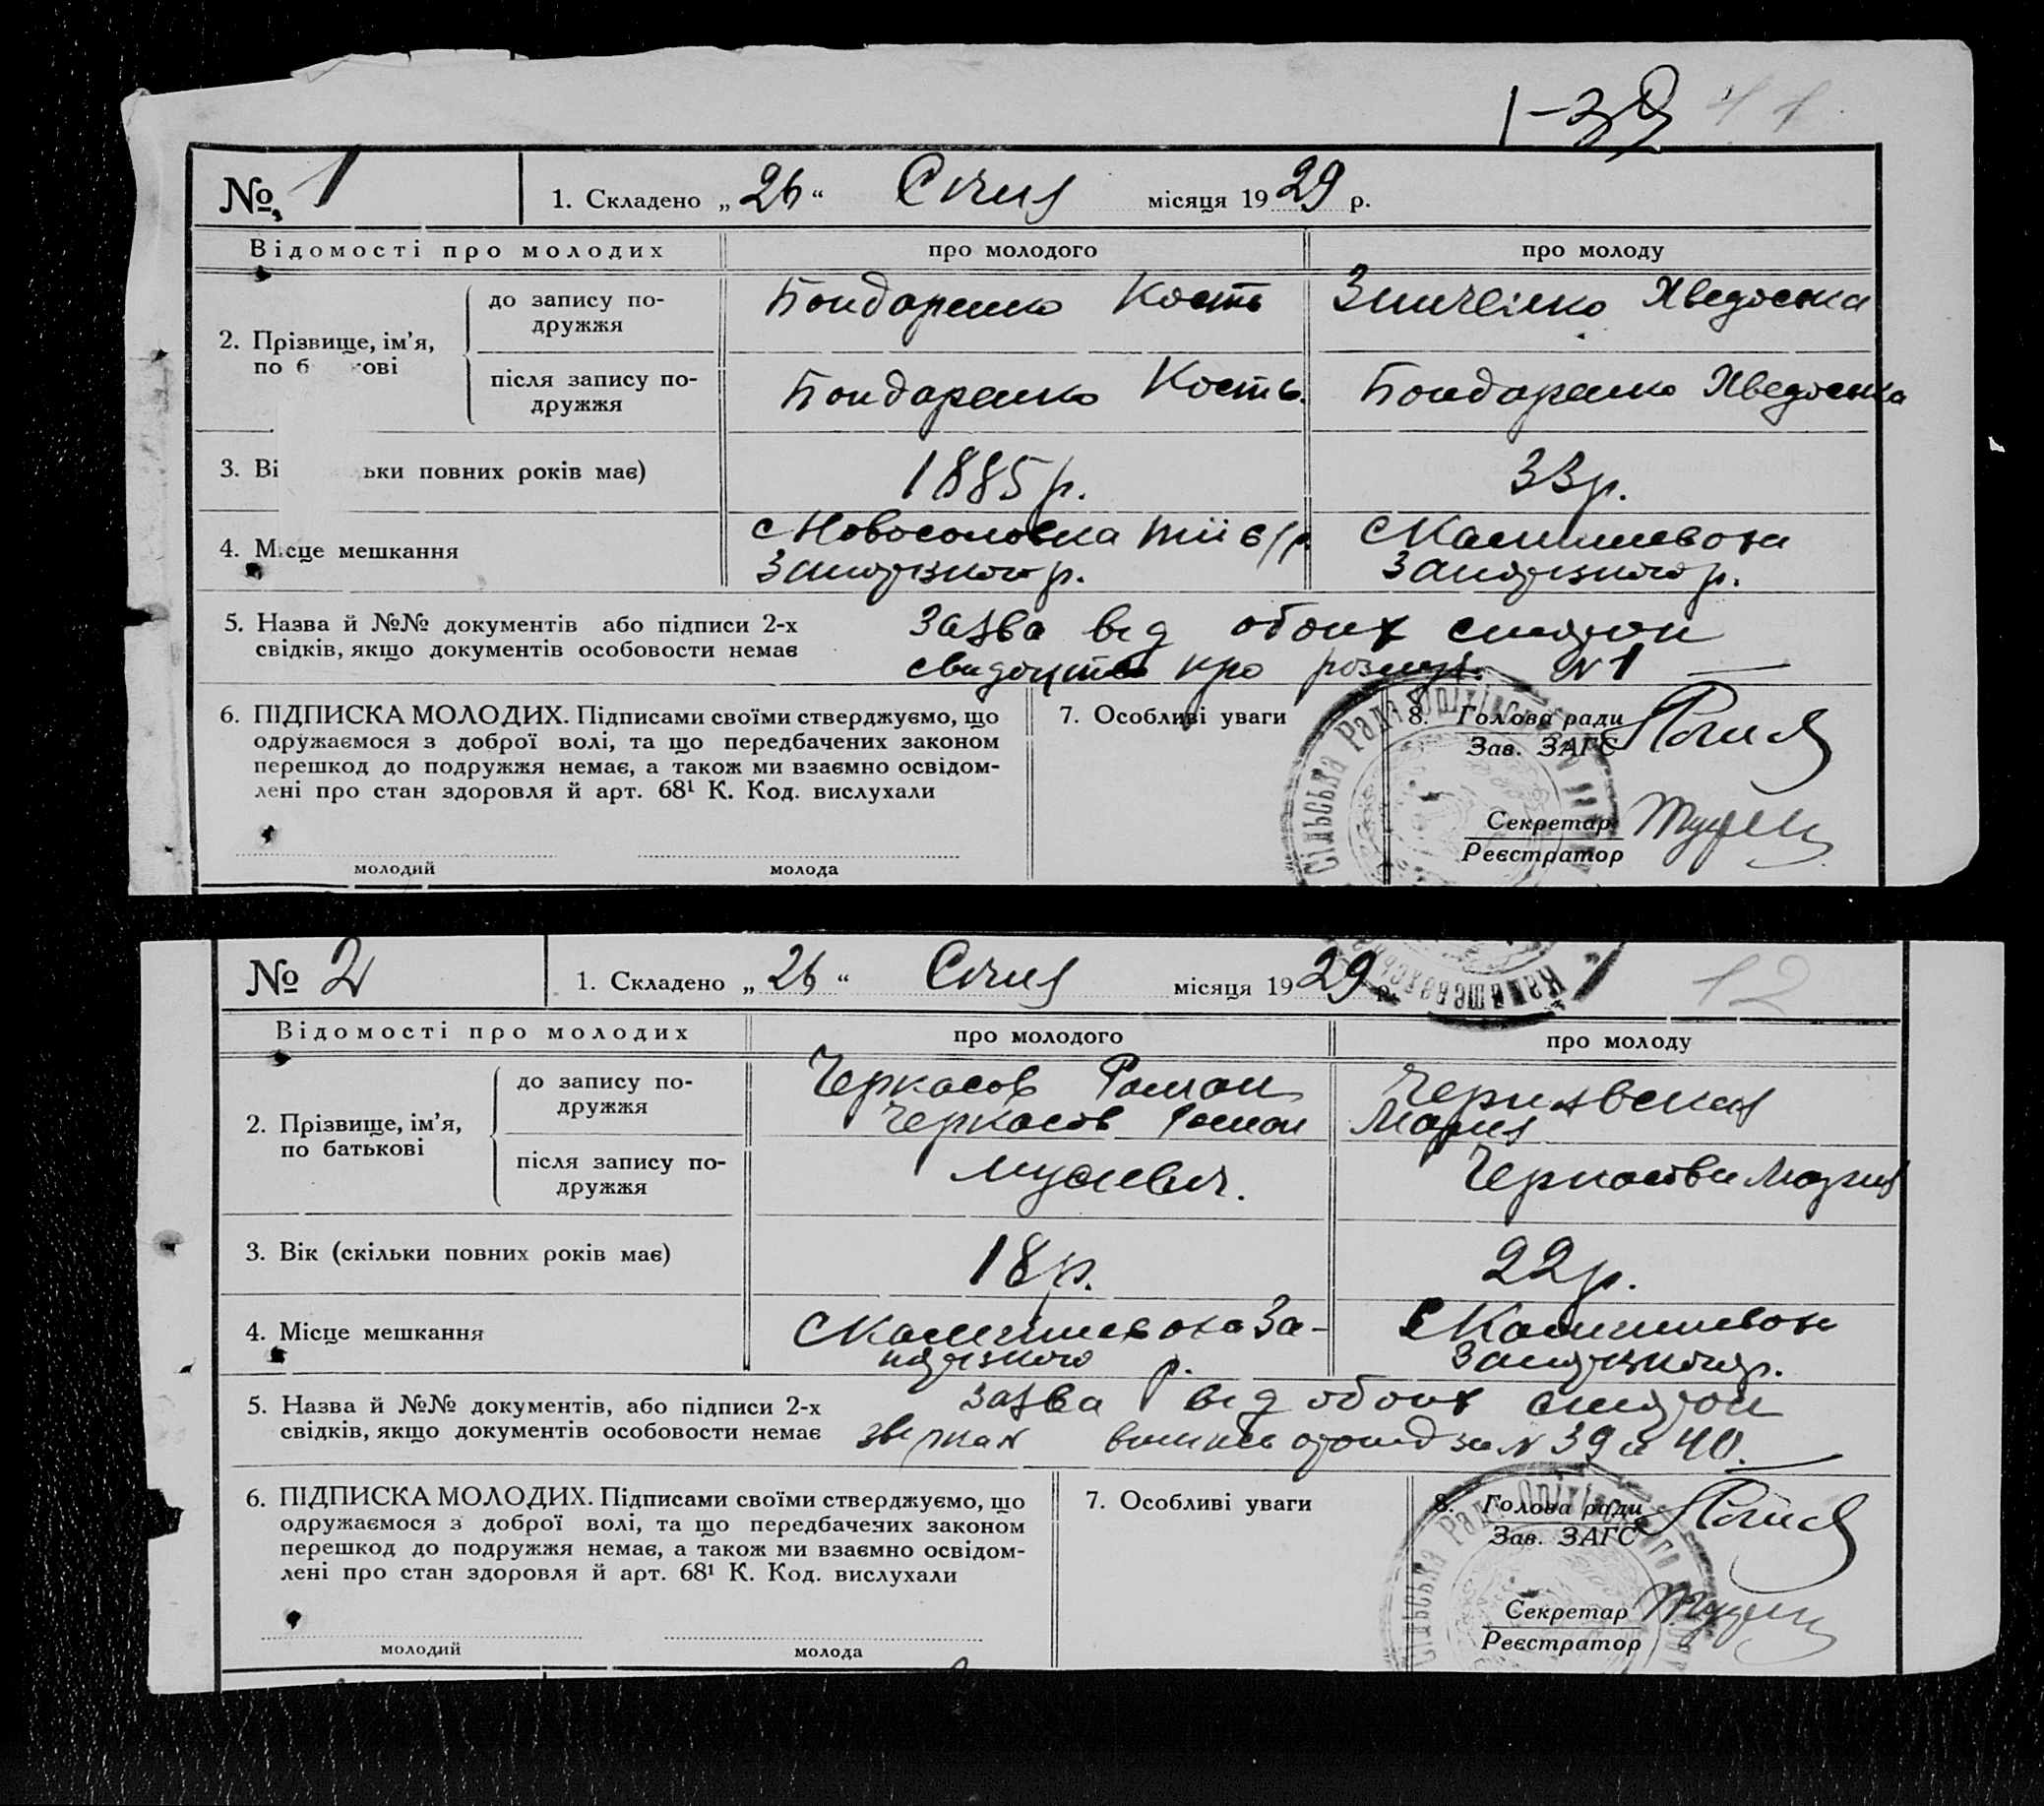 1-39 11
№ 1 1. Складено „ 26 “ Січня місяця 19 29 р.
Відомості про молодих про молодого про молоду
2. Прізвище, ім’я, по б ові
до запису подружжя Бондаренко Кость Зинченко Хведоська
після запису подружжя Бондаренко Кость Бондаренко Хведоська
3. Ві ьки повних років має) 1885 р. 33 р.
4. Місце мешкання с Новосоловка с Камишеваха
р. р.
5. Назва й №№ документів або підписи 2-х Заява від обоих сторон
свідків, якщо документів особовости немає про №1
6. ПІДПИСКА МОЛОДИХ. Підписами своїми стверджуємо, що 7. Особливі уваги 8. Голова ради
одружаємося з доброї волі, та що передбачених законом Зав. ЗАГС
перешкод до подружжя немає, а також ми взаємно освідом-
лені про стан здоровля й арт. 68¹ К. Код. вислухали
Секретар
Реєстратор
молодий молода
Сільська Рада Оріхівського
№ 2 1. Складено „ 26 “ Січня місяця 19 29 р. 12
Камишеваська
Відомості про молодих про молодого про молоду
2. Прізвище, ім’я, по батькові
до запису подружжя Черкасов Роман Чернявская
Черкасов Роман Мария
після запису подружжя Мусиевич. Черкасова Мария
3. Вік (скільки повних років має) 18 р. 22 р.
4. Місце мешкання с Камишеваха За- с Камишеваха
р. р.
5. Назва й №№ документів, або підписи 2-х заява від обоих сторон
свідків, якщо документів особовости немає за № 39 и 40.
6. ПІДПИСКА МОЛОДИХ. Підписами своїми стверджуємо, що 7. Особливі уваги 8. Голова ради
одружаємося з доброї волі, та що передбачених законом Зав. ЗАГС
перешкод до подружжя немає, а також ми взаємно освідом-
лені про стан здоровля й арт. 68¹ К. Код. вислухали
Секретар
Реєстратор
молодий молода
Сільська Рада Оріхівського